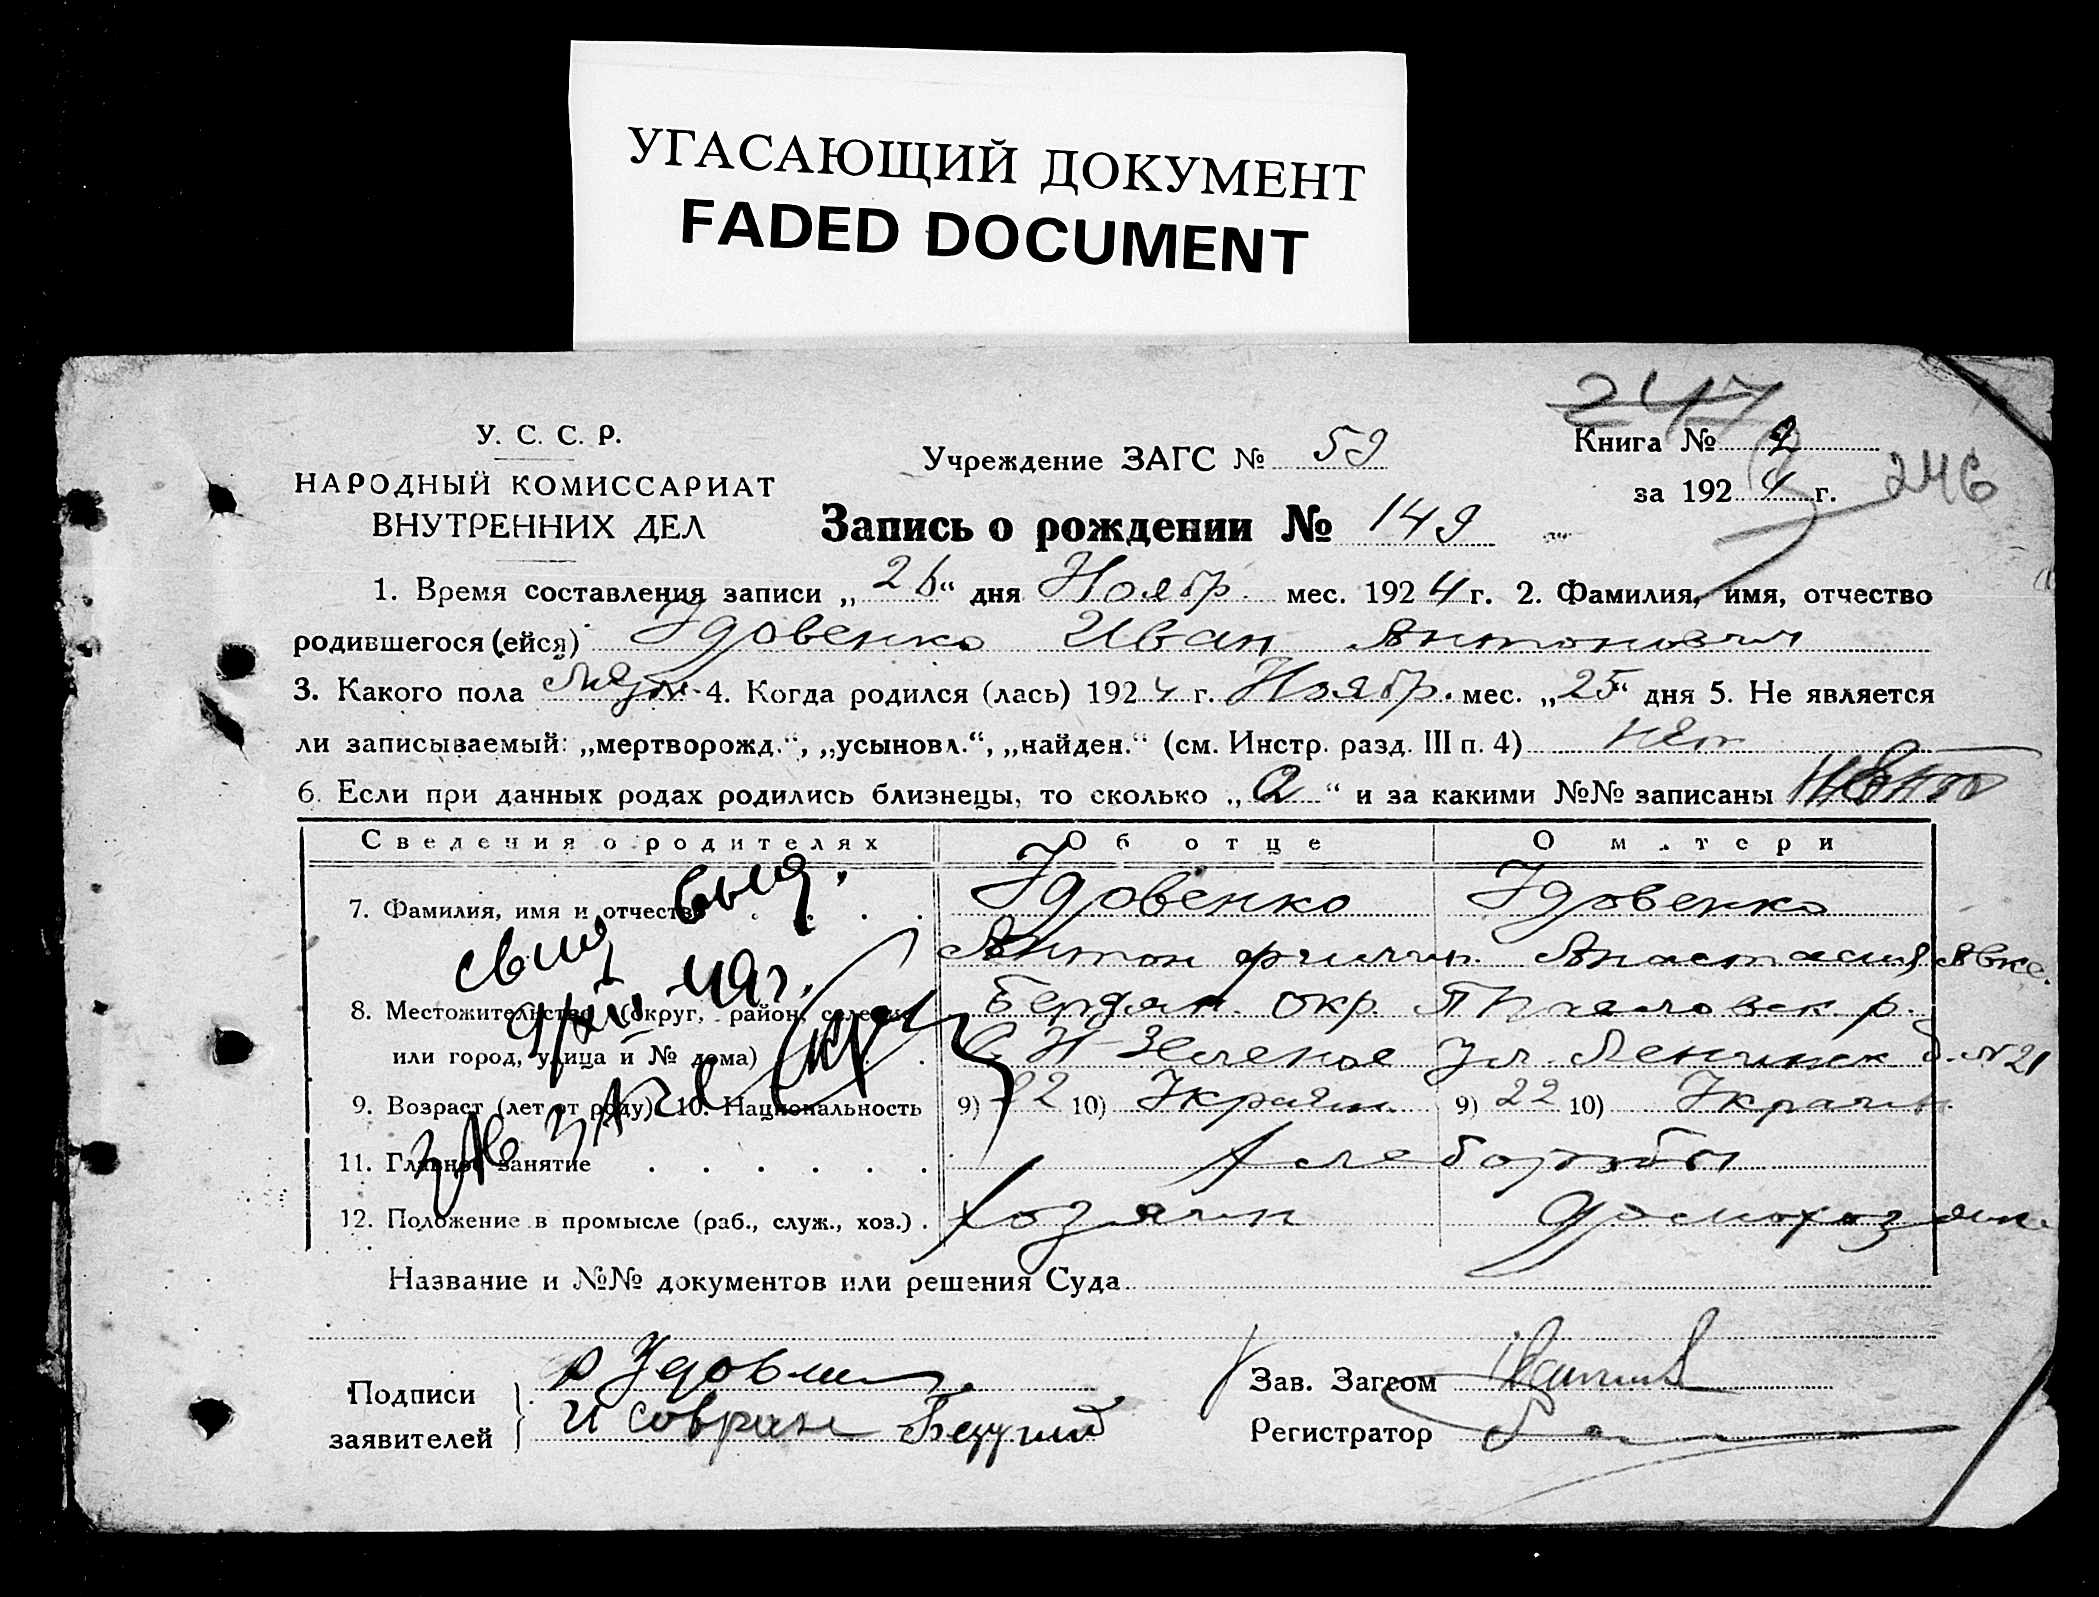 УГАСАЮЩИЙ ДОКУМЕНТ
FADED DOCUMENT
247
У. С. С. Р.
НАРОДНЫЙ КОМИССАРИАТ
ВНУТРЕННИХ ДЕЛ
Учреждение ЗАГС № 59
Книга № 2
за 1924 г.
246
Запись о рождении № 149
1. Время составления записи „26“ дня Ноябр. мес. 1924 г. 2. Фамилия, имя, отчество
родившегося (ейся) Удовенко Иван Антонович
3. Какого пола Муж. 4. Когда родился (лась) 1924 г. Ноябр. мес. „25“ дня 5. Не является
ли записываемый: „мертворожд.“, „усыновл.“, „найден.“ (см. Инстр. разд. III п. 4) нет
6. Если при данных родах родились близнецы, то сколько „ “ и за какими №№ записаны
Сведения о родителях Об отце О матери
7. Фамилия, имя и отчество Удовенко Удовенко
Антон Филип. Анастасия Авкс.
8. Местожительство (округ, район, селение Бердян. окр. р.
или город, улица и № дома) С. Н-Зеленое ул. Ленинск д. № 21
9. Возраст (лет от роду) 10. Национальность 9) 22 10) Украин. 9) 22 10) Украин.
11. Главное занятие Хлеборобы
12. Положение в промысле (раб., служ., хоз.) Хозяин домохозяик.
св-ия
49 г.
ЗАГС
Название и №№ документов или решения Суда
Подписи
заявителей
А Удовенко
И
Зав. Загсом
Регистратор